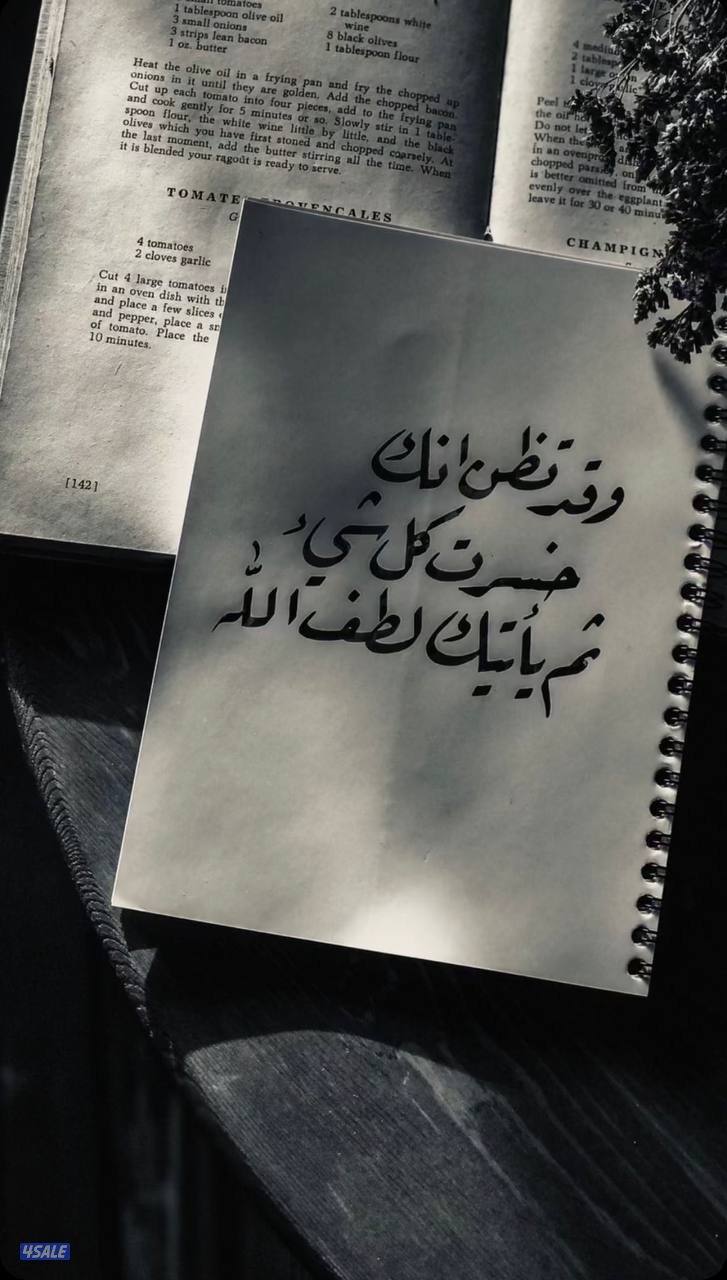 1 tablespoon olive oil
3 small onions
3 strips lean bacon
1 oz. butter
2 tablespoons white
wine
8 black olives
1 tablespoon flour
Heat the olive oil in a frying pan and fry the chopped up
onions in it until they are golden. Add the chopped bacon.
Cut up each tomato into four pieces, add to the frying pan
and cook gently for 5 minutes or so. Slowly stir in 1 table-
spoon flour, the white wine little by little, and the black
olives which you have first stoned and chopped coarsely. At
the last moment, add the butter stirring all the time. When
it is blended your ragoût is ready to serve.
TOMATE PROVENCALES
4 tomatoes
2 cloves garlic
Cut 4 large tomatoes
in an oven dish with
and place a few slices
and pepper, place a
of tomato. Place the
10 minutes.
[142]
4
2
1 large
1
Peel
the oil
Do not let
When the
in an ovenproof
chopped parsley,
is better omitted from
evenly over the eggplant
leave it for 30 or 40
CHAMPIGN
وقد تظن انك
خسرت كل شيء
ثم يأتيك لطف الله
4SALE